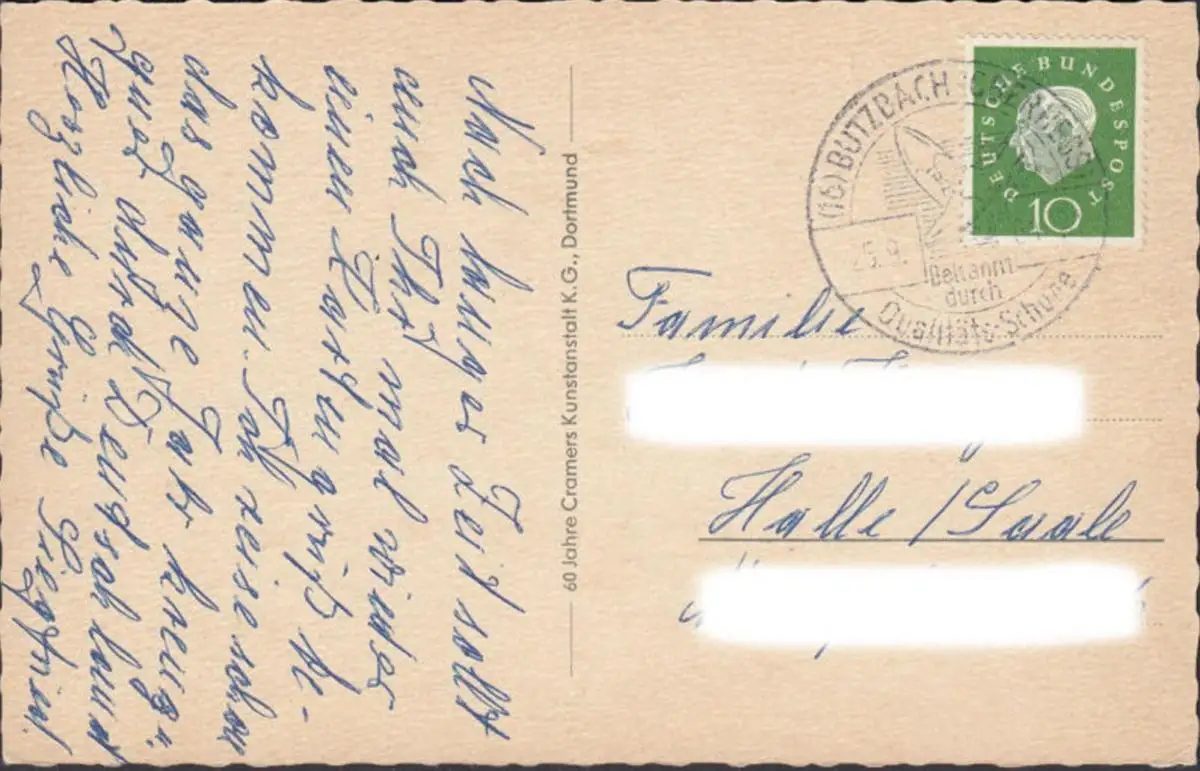 Nach langer Zeit sollt
auch Ihr mal wieder
einen Kartengruß be-
kommen. Ich reise schon
das ganze Jahr kreuz
quer durch Deutschland
Herzliche Grüße Siegfried.
60 Jahre Cramers Kunstanstalt K.G., Dortmund
(16) BUTZBACH (OBERHESS
25.9.
Bekannt
durch
Qualitäts-Schuhe
DEUTSCHE BUNDESPOST
10
Familie
Halle / Saale